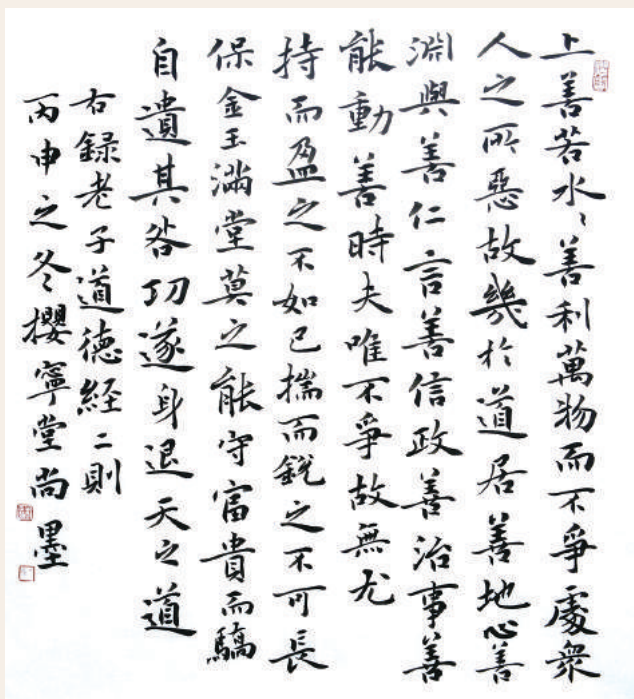 上善若水〻善利萬物而不爭處衆
人之所惡故幾於道居善地心善
淵與善仁言善信政善治事善
能動善時夫唯不爭故無尤
持而盈之不如已揣而銳之不可長
保金玉滿堂莫之能守富貴而驕
自遺其咎功遂身退天之道
右録老子道德経二則
丙申之冬〻攖寧堂尚墨